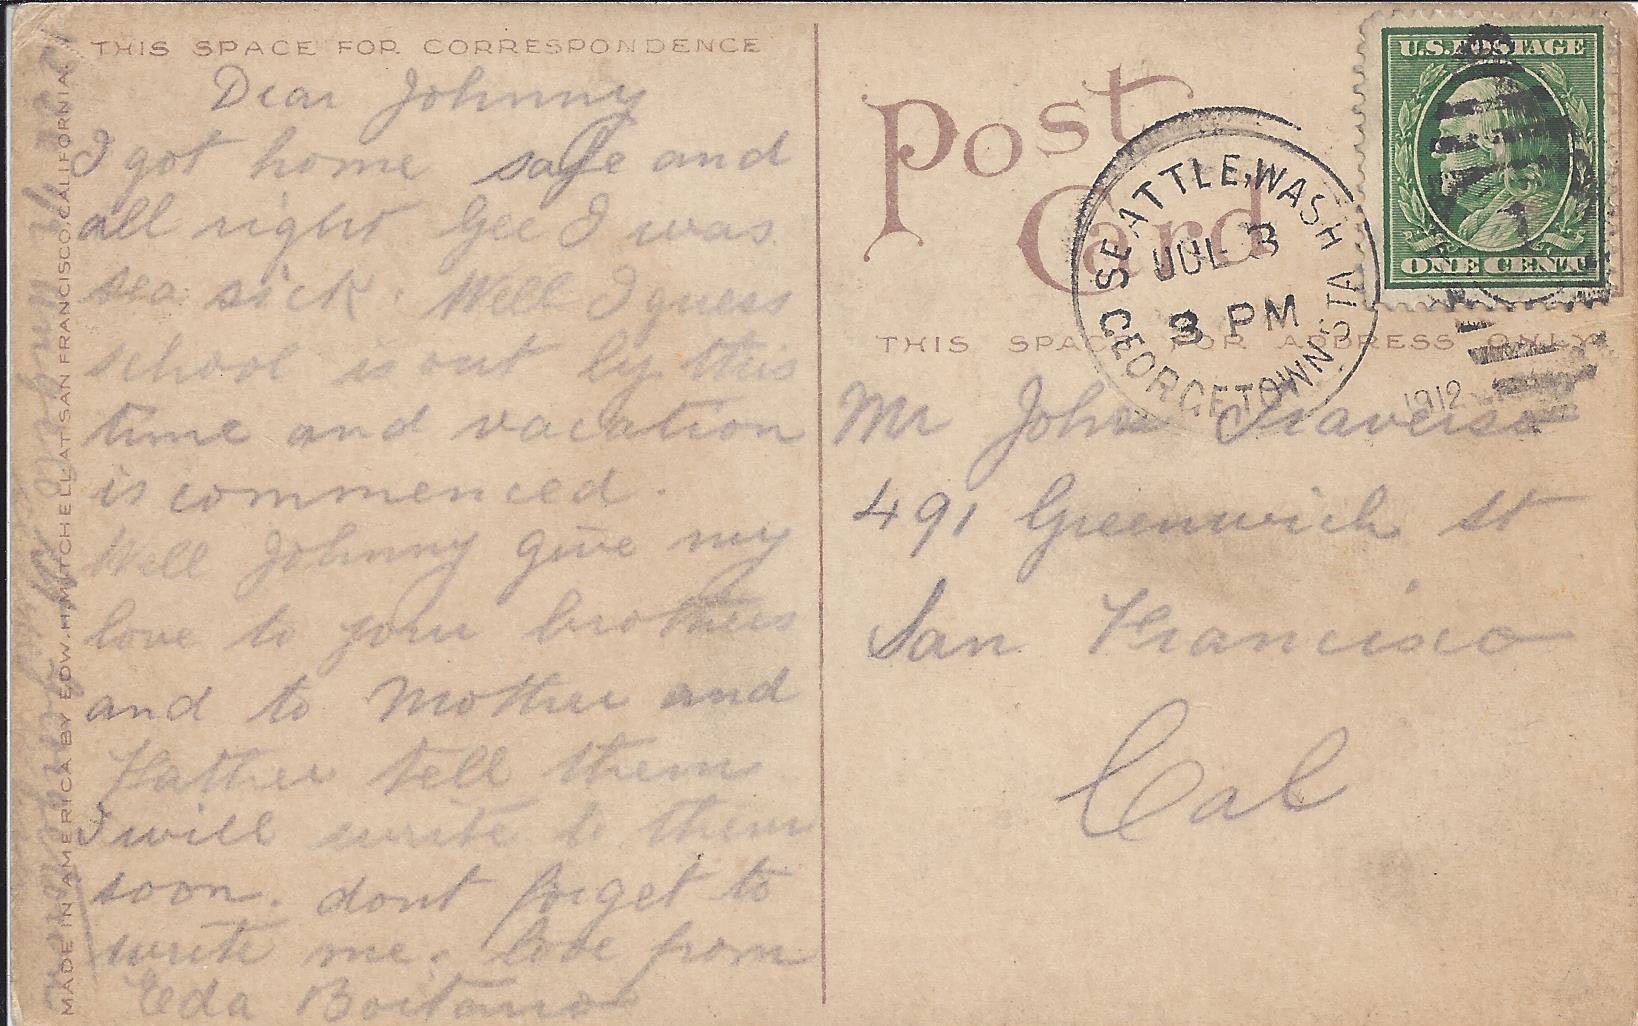 THIS SPACE FOR CORRESPONDENCE
Dear Johnny
I got home safe and
all right Gee I was
sea sick. Well I guess
school is out by this
time and vacation
is commenced.
Well Johnny give my
love to your brothers
and to Mother and
Father tell them
I will write to them
soon. dont forget to
write me. love from
Elda Boitano
MADE IN AMERICA BY EDW. H. MITCHELL AT SAN FRANCISCO, CALIFORNIA
Post
Card
U.S. POSTAGE
ONE CENT
SEATTLE, WASH
JUL 3
3 PM
GEORGETOWN STA
1912
THIS SPACE FOR ADDRESS ONLY
Mr John Traverso
491 Greenwich St
San Francisco
Cal